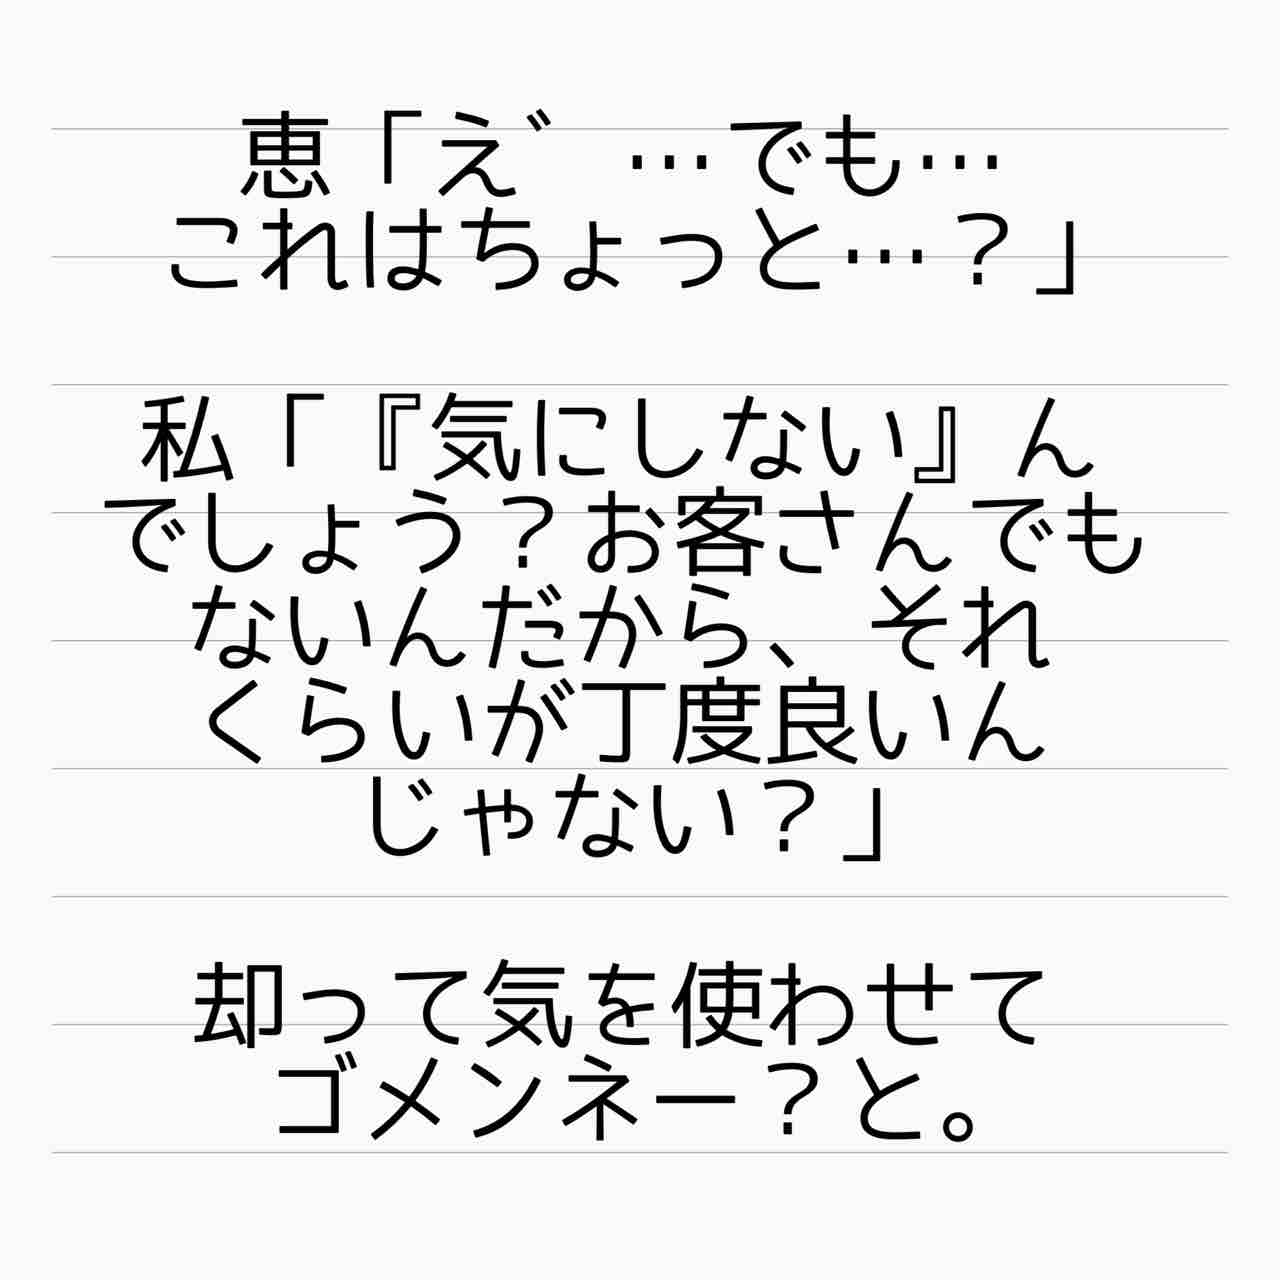 恵「え゛ …でも…
これはちょっと…？」
私「『気にしない』ん
でしょう？お客さんでも
ないんだから、それ
くらいが丁度良いん
じゃない？」
却って気を使わせて
ゴメンネー？と。